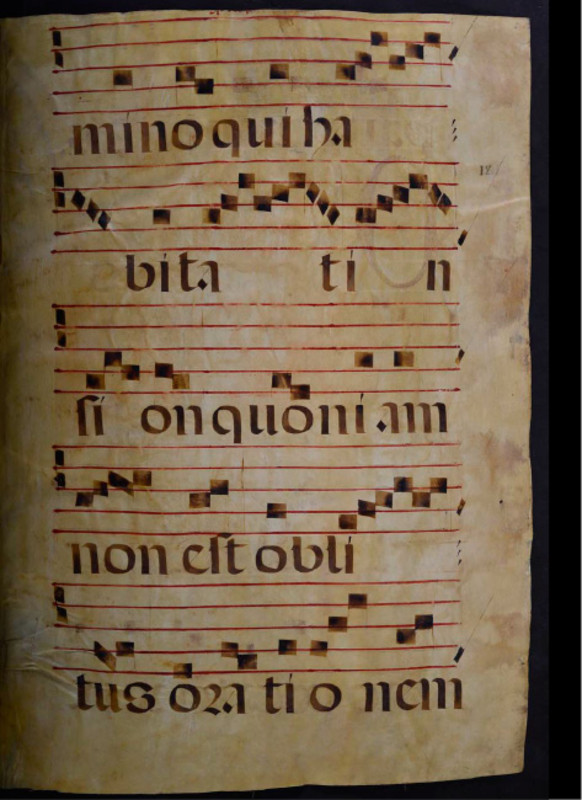 mino qui ha
bita ti n
si on quoni am
non est obli
tus ora ti o nem